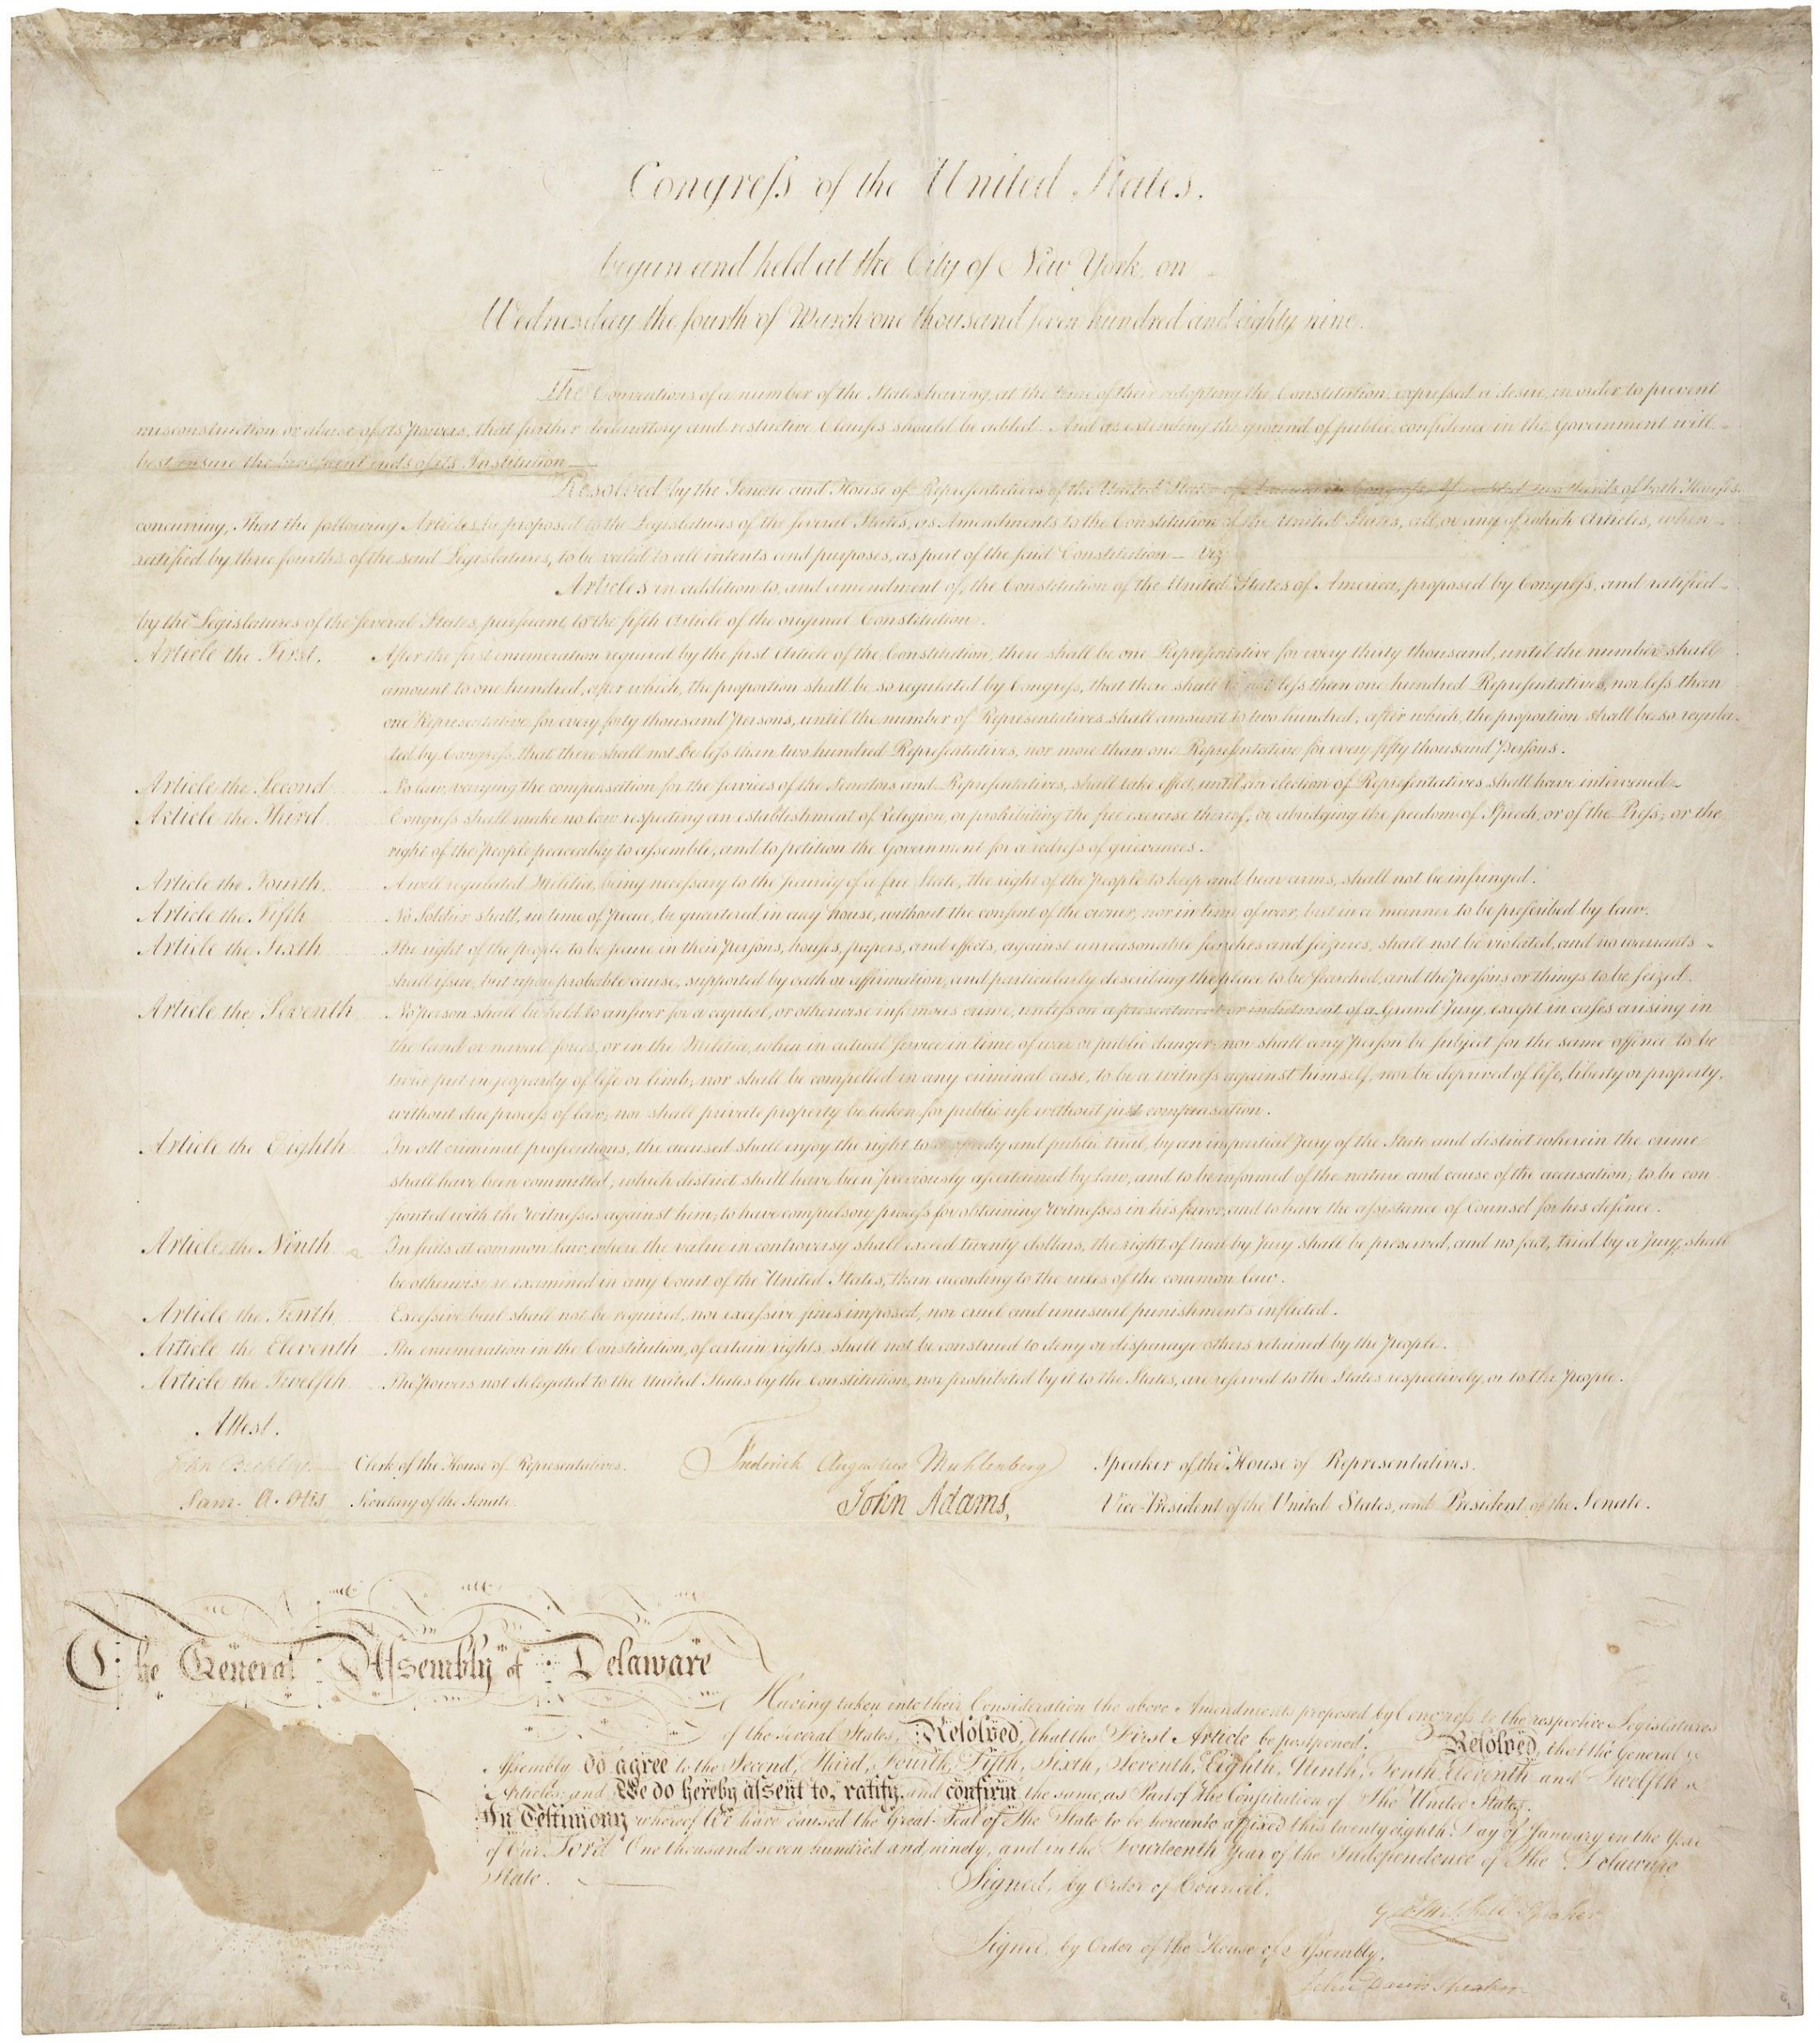 Congress of the United States.
begun and held at the City of New York, on
Wednesday the fourth of March one thousand seven hundred and eighty nine.
The Conventions of a number of the States having, at the time of their adopting the Constitution, expressed a desire, in order to prevent
misconstruction or abuse of its powers, that further declaratory and restrictive Clauses should be added: And as extending the ground of public confidence in the Government will
best ensure the beneficent ends of its Institution
Resolved by the Senate and House of Representatives of the United States of America in Congress assembled, two thirds of both Houses
concurring, That the following Articles be proposed to the Legislatures of the several States, as Amendments to the Constitution of the United States, all, or any of which Articles, when
ratified by three fourths of the said Legislatures, to be valid to all intents and purposes, as part of the said Constitution — Viz
Articles in addition to, and amendment of, the Constitution of the United States of America, proposed by Congress, and ratified
by the Legislatures of the several States, pursuant to the fifth Article of the original Constitution.
Article the First. After the first enumeration required by the first Article of the Constitution, there shall be one Representative for every thirty thousand, until the number shall
amount to one hundred, after which, the proportion shall be so regulated by Congress, that there shall be not less than one hundred Representatives, nor less than
one Representative for every forty thousand persons, until the number of Representatives shall amount to two hundred, after which, the proportion shall be so regula-
ted by Congress, that there shall not be less than two hundred Representatives, nor more than one Representative for every fifty thousand persons.
Article the Second No law, varying the compensation for the services of the Senators and Representatives, shall take effect, until an election of Representatives shall have intervened
Article the Third Congress shall make no law respecting an establishment of Religion, or prohibiting the free exercise thereof; or abridging the freedom of Speech, or of the Press; or the
right of the people peaceably to assemble, and to petition the Government for a redress of grievances.
Article the Fourth. A well regulated Militia, being necessary to the security of a free State, the right of the people to keep and bear arms, shall not be infringed.
Article the Fifth No Soldier shall, in time of peace, be quartered in any house, without the consent of the owner, nor in time of war, but in a manner to be prescribed by law.
Article the Sixth The right of the people to be secure in their persons, houses, papers, and effects, against unreasonable searches and seizures, shall not be violated, and no warrants
shall issue, but upon probable cause, supported by oath or affirmation, and particularly describing the place to be searched, and the persons or things to be seized.
Article the Seventh No person shall be held to answer for a capital, or otherwise infamous crime, unless on a presentment or indictment of a Grand Jury, except in cases arising in
the land or naval forces, or in the Militia, when in actual service in time of war or public danger; nor shall any person be subject for the same offence to be
twice put in jeopardy of life or limb; nor shall be compelled in any criminal case, to be a witness against himself, nor be deprived of life, liberty or property,
without due process of law; nor shall private property be taken for public use without just compensation.
Article the Eighth In all criminal prosecutions, the accused shall enjoy the right to a speedy and public trial, by an impartial Jury of the State and district wherein the crime
shall have been committed, which district shall have been previously ascertained by law, and to be informed of the nature and cause of the accusation; to be con
fronted with the witnesses against him; to have compulsory process for obtaining witnesses in his favor, and to have the assistance of Counsel for his defence.
Article the Ninth In suits at common law, where the value in controversy shall exceed twenty dollars, the right of trial by Jury shall be preserved, and no fact, tried by a Jury, shall
be otherwise re examined in any Court of the United States, than according to the rules of the common law.
Article the Tenth Excessive bail shall not be required, nor excessive fines imposed, nor cruel and unusual punishments inflicted.
Article the Eleventh The enumeration in the Constitution, of certain rights, shall not be construed to deny or disparage others retained by the people.
Article the Twelfth The powers not delegated to the United States by the Constitution, nor prohibited by it to the States, are reserved to the States respectively, or to the people.
Attest.
John Beckley — Clerk of the House of Representatives. Frederick Augustus Muhlenberg Speaker of the House of Representatives.
Sam. A. Otis Secretary of the Senate. John Adams, Vice-President of the United States, and President of the Senate.
The General Assembly of Delaware
Having taken into their Consideration the above Amendments proposed by Congress to the respective Legislatures
of the several States, Resolved, that the First Article be postponed. Resolved, that the General
Assembly do agree to the Second, Third, Fourth, Fifth, Sixth, Seventh, Eighth, Ninth, Tenth, Eleventh and Twelfth
Articles; and We do hereby assent to, ratify, and confirm the same, as Part of the Constitution of the United States.
In Testimony whereof We have caused the Great-Seal of The State to be hereunto affixed this twenty eighth Day of January in the Year
of Our Lord One thousand seven hundred and ninety, and in the Fourteenth Year of the Independence of The Delaware
State.
Signed, by Order of Council.
Geo Mitchell Speaker
Signed, by Order of the House of Assembly.
John Davis Speaker